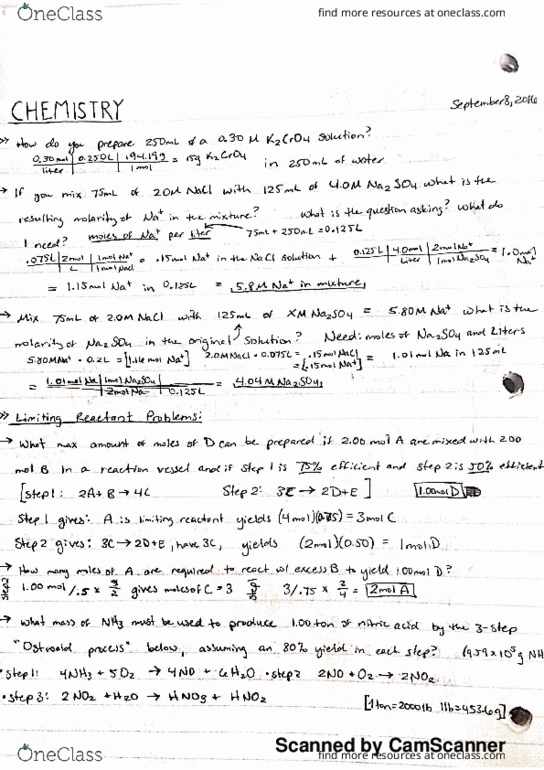 OneClass
find more resources at oneclass.com
CHEMISTRY
September 8, 2016
>> How do you prepare 250mL of a 0.30 M K2CrO4 solution?
0.30 mol | 0.250L | 194.19g = 15g K2CrO4 in 250mL of water
liter | | 1 mol
→ If you mix 75mL of 2.0M NaCl with 125mL of 4.0M Na2SO4 what is the
resulting molarity of Na+ in the mixture? What is the question asking? What do
I need? moles of Na+ per liter 75mL + 250mL = 0.125L
.075L | 2mol | 1mol Na+ = .15mol Na+ in the NaCl solution + 0.125L | 4.0mol | 2mol Na+ = 1.0mol Na+
L | 1mol NaCl Liter | 1mol Na2SO4
= 1.15mol Na+ in 0.125L = 5.8M Na+ in mixture
→ Mix 75mL of 2.0M NaCl with 125mL of XM Na2SO4 = 5.80M Na+ what is the
molarity of Na2SO4 in the original solution? Need: moles of Na2SO4 and Liters
5.80M Na+ · 0.2L = [1.16 mol Na+] 2.0M NaCl · 0.075L = .15mol NaCl = 1.01mol Na in 125mL
= [.15mol Na+]
= 1.01mol Na | 1mol Na2SO4 = 4.04M Na2SO4
2mol Na | 0.125L
>> Limiting Reactant Problems:
→ What max amount of moles of D can be prepared if 2.00 mol A are mixed with 2.00
mol B in a reaction vessel and if step 1 is 75% efficient and step 2 is 50% efficient
[step1: 2A+B → 4C Step 2: 3C → 2D+E ] 1.00mol D
Step 1 gives: A is limiting reactant yields (4mol)(0.75) = 3mol C
Step 2 gives: 3C → 2D+E, have 3C, yields (2mol)(0.50) = 1mol D
→ How many moles of A are required to react w/ excess B to yield 1.00mol D?
step2 1.00 mol/.5 × 3/2 gives moles of C = 3 step1 3/.75 × 2/4 = 2mol A
→ What mass of NH3 must be used to produce 1.00 ton of nitric acid by the 3-step
"Ostwald process" below, assuming an 80% yield in each step? (9.59 x 10^5 g NH
• step1: 4NH3 + 5O2 → 4NO + 6H2O • step2 2NO + O2 → 2NO2
• step 3: 2NO2 + H2O → HNO3 + HNO2
[1 ton = 2000lb 1lb = 453.6g]
Scanned by CamScanner
OneClass
find more resources at oneclass.com